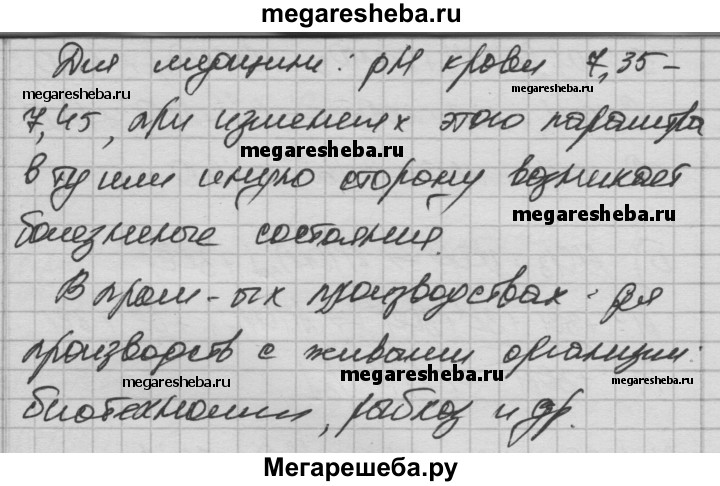 megaresheba.ru
Для медицины: pH крови 7,35-
megaresheba.ru
megaresheba.ru
7,45, при изменениях этого параметра
megaresheba.ru
в ту или иную сторону возникает
megaresheba.ru
болезненные состояния.
В пром-ых производствах: для
производств с живыми организм.:
megaresheba.ru
megaresheba.ru
megaresheba.ru
биотехнологии, рыбхоз и др.
Мегарешеба.ру